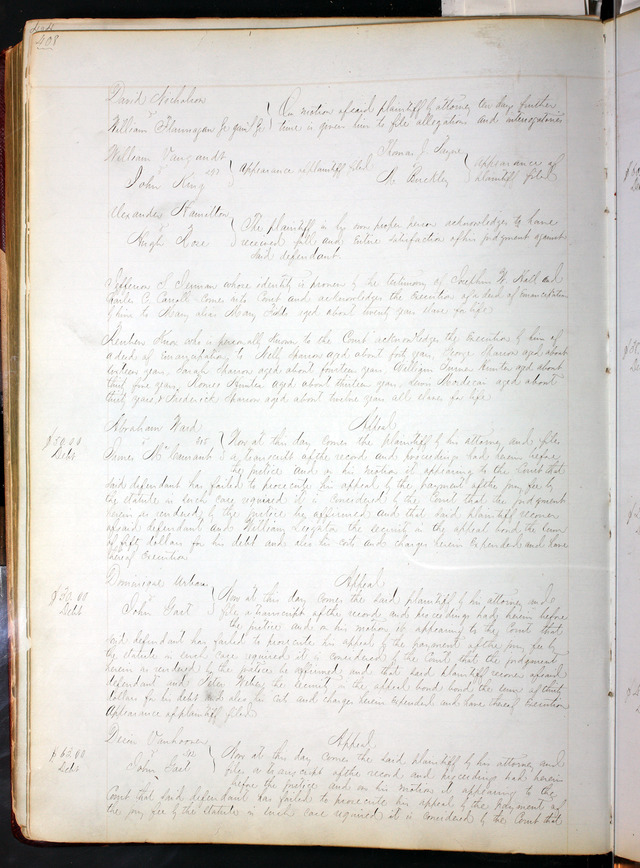 408
David Nicholson
vs
William Flannagan Jr gen'l Jr } On motion of said plaintiff by attorney ten days further
time is given him to file allegations and interrogatories
William Vangundt
vs 297
John King } Appearance of plaintiff filed
Thomas J. Payne
vs
Buckley } Appearance of
plaintiff filed
Alexander Hamilton
vs
Hugh Rose } The plaintiff in his own proper person acknowledges to have
received full and entire satisfaction of his judgment against
said defendant
Jefferson S. whose identity is proven by the testimony of Josephus W. Hall and
Charles C. Carroll comes into Court and acknowledges the Execution of a deed of Emancipation
by him to Mary alias Mary aged about twenty years slave for life
who is personally known to the Court acknowledges the Execution by him of
a deed of Emancipation to Nelly Sparrow aged about forty years, George Sparrow aged about
years, Sarah Sparrow aged about fourteen years, William Hunter aged about
thirty five years, Hunter aged about thirteen years, aged about
thirty years & Frederick Sparrow aged about twelve years all slaves for life
Abraham Ward Appeal
$50.00
Debt
vs
James } Now at this day comes the plaintiff by his attorney and files
a transcript of the record and proceedings had herein before
the justice and on his motion it appearing to the Court that
said defendant has failed to prosecute his appeal by the payment of the jury fee by
the statute in such case required it is considered by the Court that the judgment
herein as rendered by the justice be affirmed and that said plaintiff recover
against defendant and William the security in the appeal bond, the sum
of fifty dollars for his debt and also his costs and charges herein Expended and have
thereof Execution
Dominique Appeal
$30.00
Debt
vs
John Gart } Now at this day comes the said plaintiff by his attorney and
files a transcript of the record and proceedings had herein before
the justice and on his motion it appearing to the Court that
said defendant has failed to prosecute his appeal by the payment of the jury fee by
the statute in such case required it is considered by the Court that the judgment
herein as rendered by the justice be affirmed and that said plaintiff recover against
defendant and Peter Weber the security in the appeal bond bond the sum of thirty
dollars for his debt and also his costs and charges herein Expended and have thereof Execution
Appearance of plaintiff filed
Vanhoover Appeal
$65.00
Debt
vs
John Gart } Now at this day comes the said plaintiff by his attorney and
files a transcript of the record and proceedings had herein
before the justice and on his motion it appearing to the
Court that said defendant has failed to prosecute his appeal by the payment of
the jury fee by the statute in such case required it is considered by the Court that